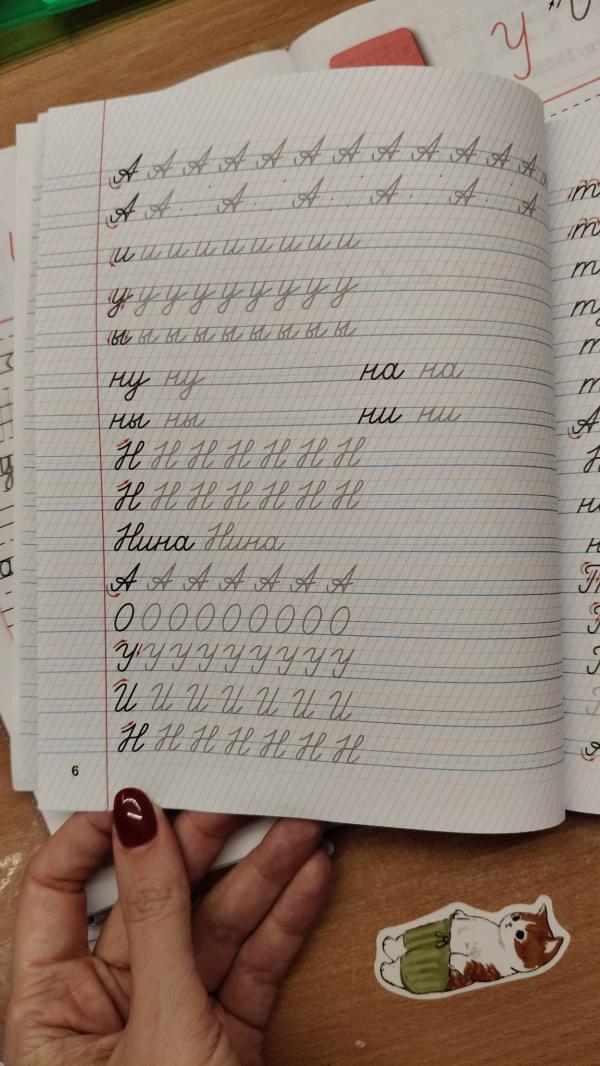 А А А А А А А А А А А А
А А А А А А А
и и и и и и и и и
у у у у у у у у у
ы ы ы ы ы ы ы ы ы
ну ну на на
ны ны ни ни
Н Н Н Н Н Н Н
Н Н Н Н Н Н Н
Нина Нина
А А А А А А А
О О О О О О О О О
У У У У У У У У У
И И И И И И И
Н Н Н Н Н Н Н
6
У